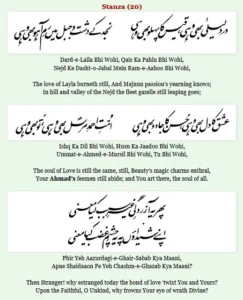 Stanza (20)
دردِ لیلیٰ بھی وہی، قیس کا پہلو بھی وہی
نجد کے دشت و جبل میں رمِ آہو بھی وہی
Dard-e-Laila Bhi Wohi, Qais Ka Pahlu Bhi Wohi,
Nejd Ke Dasht-o-Jabal Mein Ram-e-Aahoo Bhi Wohi,
The love of Layla burneth still, And Majnun passion's yearning knows;
In hill and valley of the Nejd the fleet gazelle still leaping goes;
عشق کا دل بھی وہی، حسن کا جادو بھی وہی
امتِ احمدِ مرسل بھی وہی، تو بھی وہی
Ishq Ka Dil Bhi Wohi, Husn Ka Jaadoo Bhi Wohi,
Ummat-e-Ahmed-e-Mursil Bhi Wohi, Tu Bhi Wohi,
The soul of Love is still the same, still, Beauty's magic charms enthral,
Your Ahmad's feemen still abide; and You art there, the soul of all.
پھر یہ آزردگیِ غیر سبب کیا معنی
اپنے شیداؤں پہ یہ چشمِ غضب کیا معنی
Phir Yeh Aazurdagi-e-Ghair-Sabab Kya Maani,
Apne Shaidaaon Pe Yeh Chashm-e-Ghazab Kya Maani?
Then Stranger! why estranged today the bond of love 'twixt You and Yours?
Upon the Faithful, O Unkind, why frowns Your eye of wrath Divine?